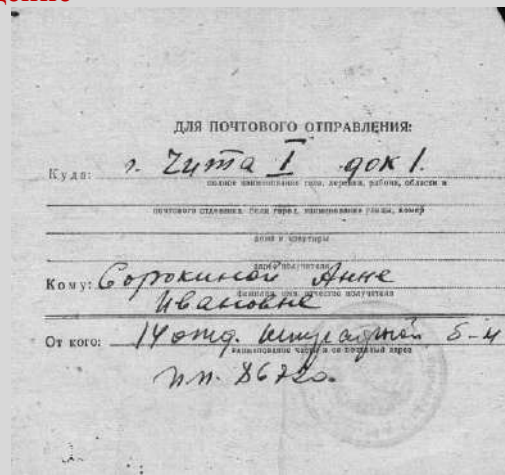 ДЛЯ ПОЧТОВОГО ОТПРАВЛЕНИЯ:
Куда: г. Чита I док 1.
полное наименование села, деревни, района, области и
почтового отделения. Если город, наименование улицы, номер
дома и квартиры
адрес получателя
Кому: Сорокиной Анне
Ивановне
фамилия, имя, отчество получателя
От кого: 14 отд. штрафной б-н
наименование части и ее почтовый адрес
п.п. 86720.